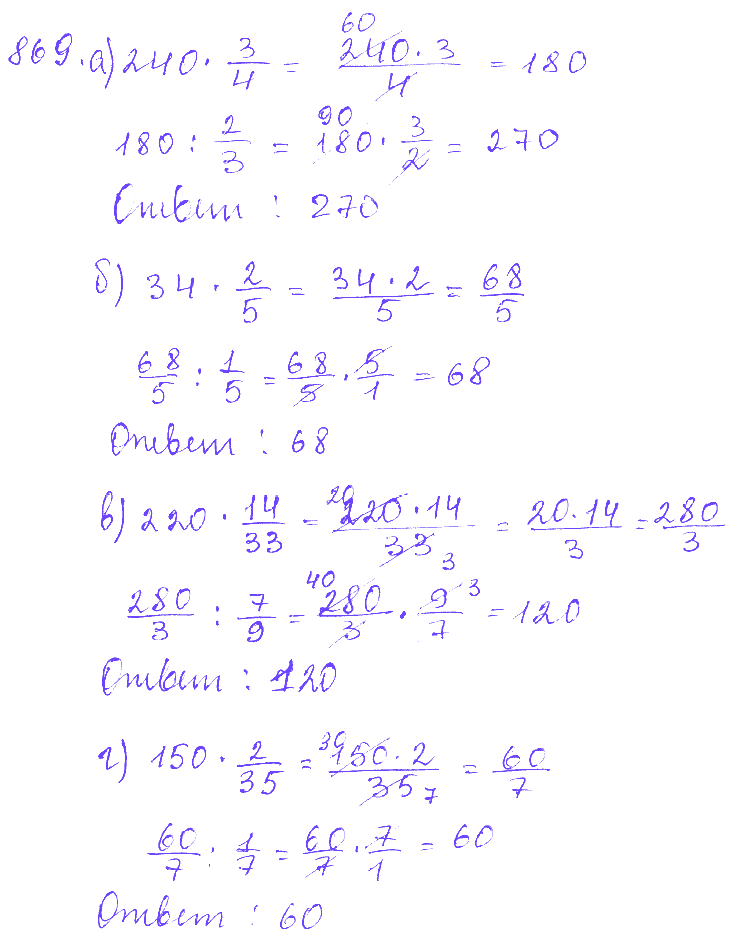 869. а) 240 · 3/4 = 240 · 3 / 4 (60) = 180
180 : 2/3 = 180 (90) · 3/2 = 270
Ответ : 270
б) 34 · 2/5 = 34 · 2 / 5 = 68/5
68/5 : 1/5 = 68/5 · 5/1 = 68
Ответ : 68
в) 220 · 14/33 = 220 (20) · 14 / 33 (3) = 20 · 14 / 3 = 280/3
280/3 : 7/9 = 280 (40) / 3 · 9 (3) / 7 = 120
Ответ : 120
г) 150 · 2/35 = 150 (30) · 2 / 35 (7) = 60/7
60/7 : 1/7 = 60/7 · 7/1 = 60
Ответ : 60